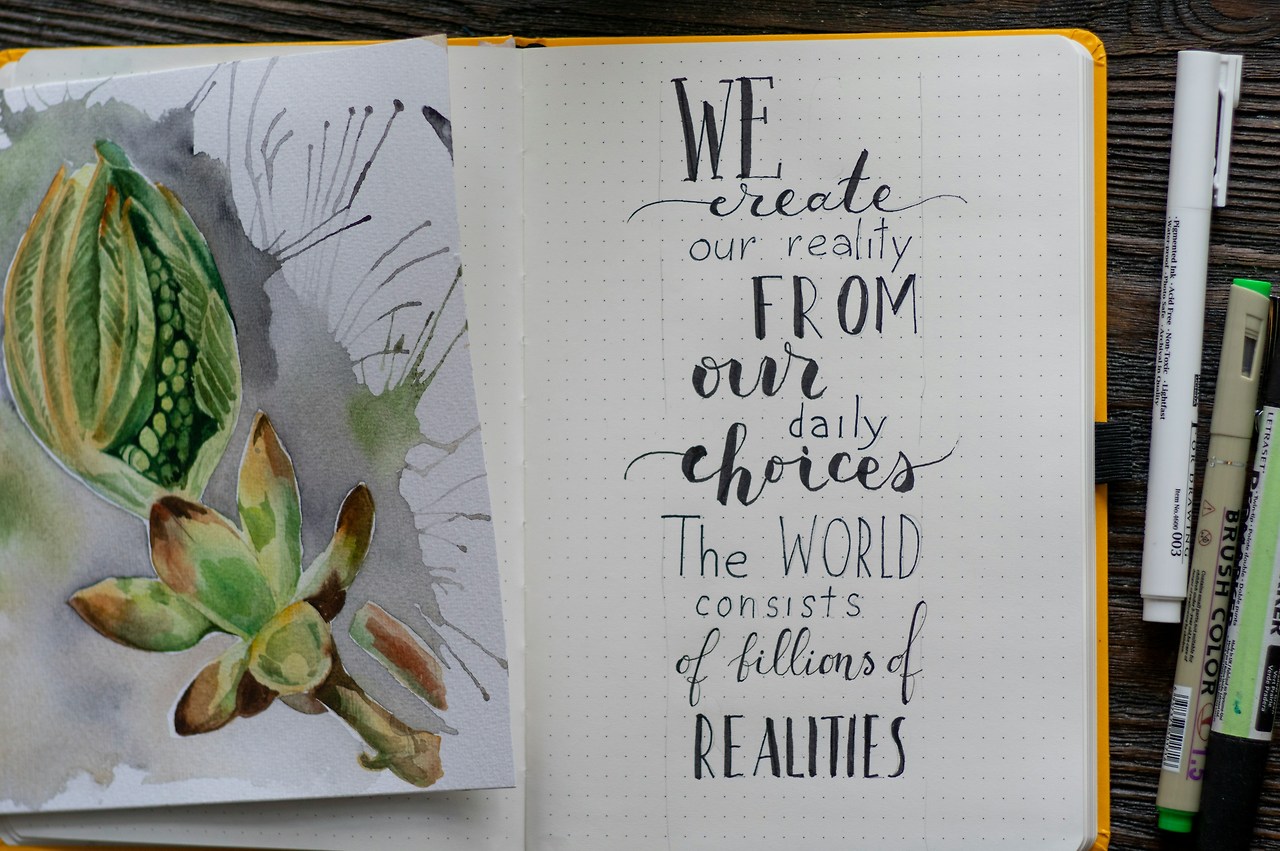 WE
create
our reality
FROM
our
daily
choices
The WORLD
consists
of billions of
REALITIES
·Pigmented Ink ·Acid Free ·Non-Toxic ·Lightfast
·Waterproof ·Photo Safe ·Archival in Quality
FOR DRAWING
Item No.4600 003
BRUSH COLOR
LETRASET